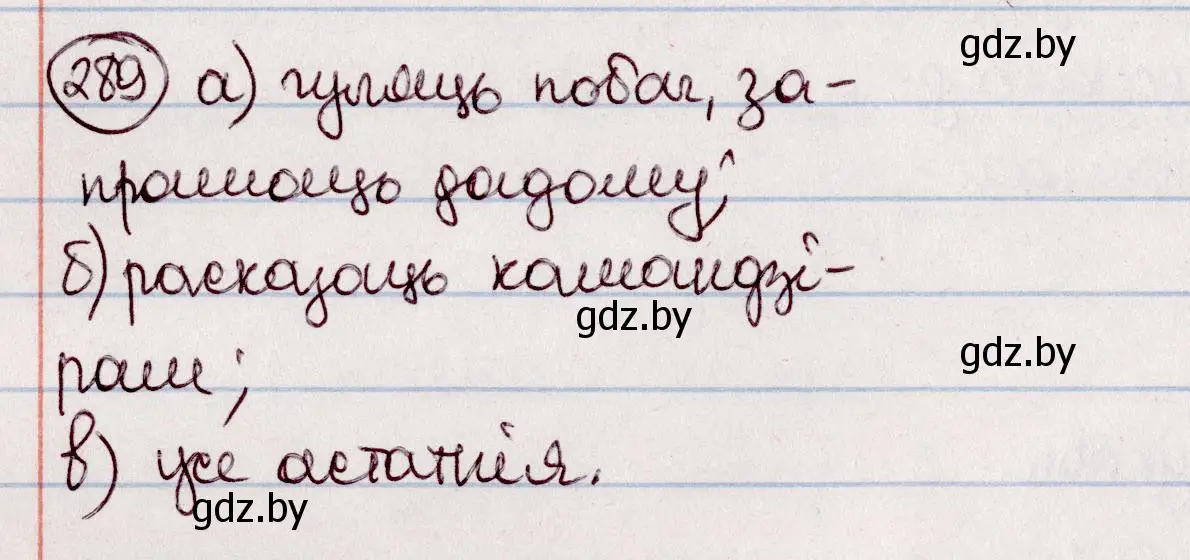 289 а) гуляць побач, за-
gdz.by
прашаць дадому;
б) расказаць камандзі-
gdz.by
gdz.by
рам;
в) усе астатнія.
gdz.by